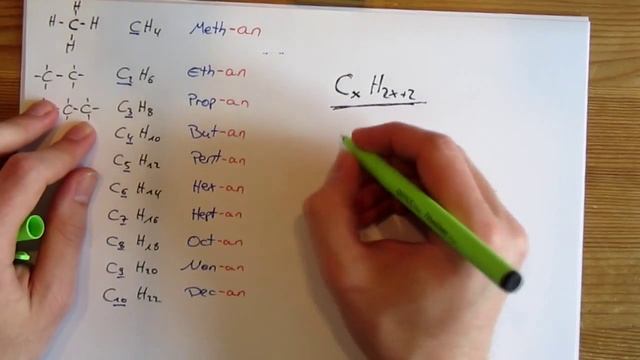 H
H-C-H CH4 Meth-an
H
-C-C- C2H6 Eth-an
CxH2x+2
C-C- C3H8 Prop-an
C4H10 But-an
C5H12 Pent-an
C6H14 Hex-an
C7H16 Hept-an
C8H18 Oct-an
C9H20 Non-an
C10H22 Dec-an